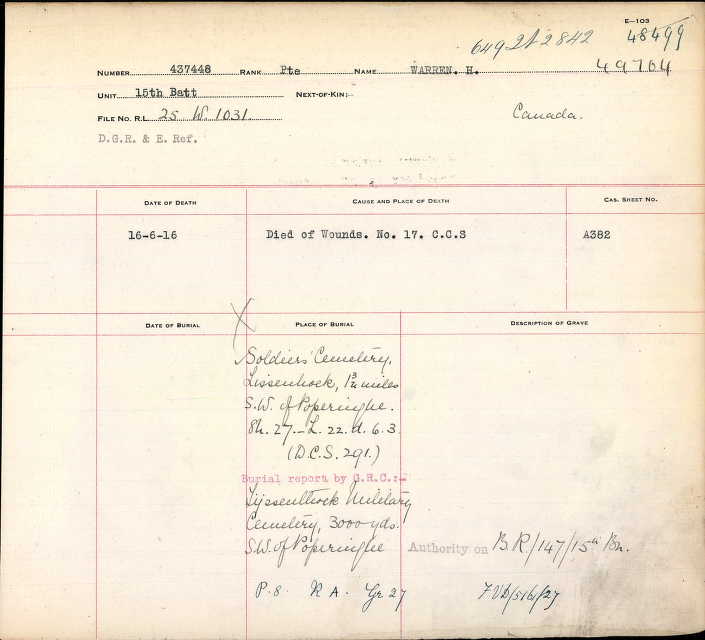 E-103
649 21 2842 48499
NUMBER 437448 RANK Pte NAME WARREN. H. 49704
UNIT 15th Batt NEXT-OF-KIN:-
FILE NO. R.L. 25 W. 1031. Canada.
D.G.R. & E. Ref.
DATE OF DEATH CAUSE AND PLACE OF DEATH CAS. SHEET NO.
16-6-16 Died of Wounds. No. 17. C.C.S A382
DATE OF BURIAL PLACE OF BURIAL DESCRIPTION OF GRAVE
Soldiers' Cemetery,
Lissenhoek, 1¾ miles
S.W. of Poperinghe.
Sh. 27.-L. 22. d. 6. 3.
(D.C.S. 291.)
Burial report by G.R.C.:-
Lijssenthoek Military
Cemetery, 3000 yds.
S.W. of Poperinghe Authority on B.R./147/15th Bn.
P. 8. R A. Gr 27